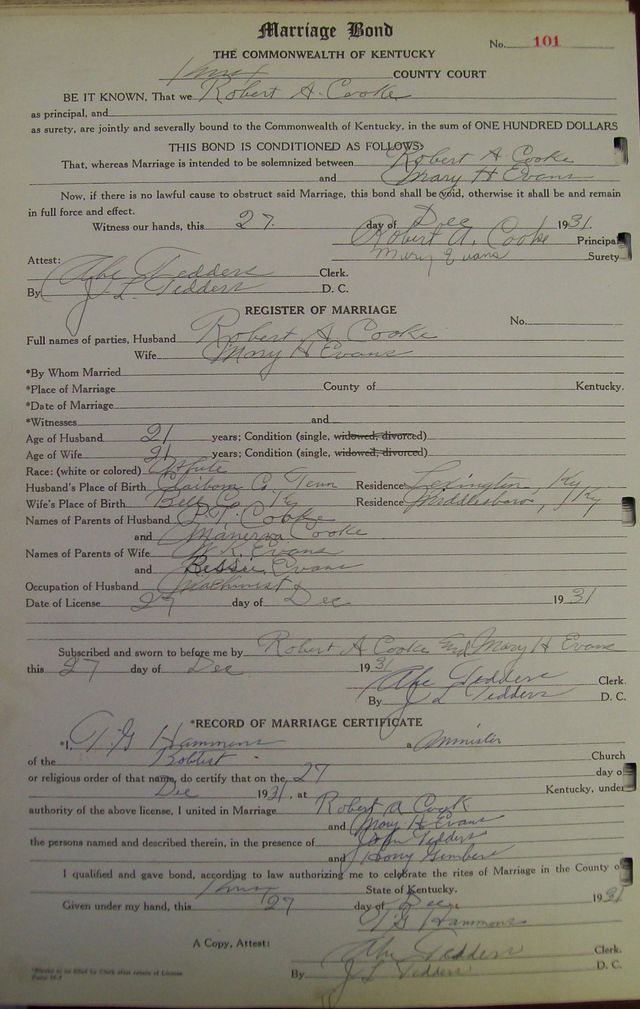 Marriage Bond
No. 101
THE COMMONWEALTH OF KENTUCKY
Knox COUNTY COURT
BE IT KNOWN, That we Robert A. Cooke
as principal, and
as surety, are jointly and severally bound to the Commonwealth of Kentucky, in the sum of ONE HUNDRED DOLLARS
THIS BOND IS CONDITIONED AS FOLLOWS:
That, whereas Marriage is intended to be solemnized between Robert A. Cooke
and Mary H Evans
Now, if there is no lawful cause to obstruct said Marriage, this bond shall be void, otherwise it shall be and remain
in full force and effect.
Witness our hands, this 27 day of Dec 1931.
Robert A. Cooke Principal
Attest: Mary Evans Surety
Abe Tedders Clerk.
By J L Tedders D. C.
REGISTER OF MARRIAGE
No.
Full names of parties, Husband Robert A Cooke
Wife Mary H Evans
*By Whom Married
*Place of Marriage County of Kentucky.
*Date of Marriage
*Witnesses and
Age of Husband 21 years; Condition (single, widowed, divorced)
Age of Wife 21 years; Condition (single, widowed, divorced)
Race: (white or colored) White
Husband's Place of Birth Claiborn Co Tenn Residence Lexington, Ky
Wife's Place of Birth Bell Co Ky Residence Middlesboro, Ky
Names of Parents of Husband Cooke
and Manerva Cooke
Names of Parents of Wife W. K. Evans
and Bessie Evans
Occupation of Husband Machinist
Date of License 27 day of Dec 1931
Subscribed and sworn to before me by Robert A Cooke and Mary H Evans
this 27 day of Dec 1931
Abe Tedders Clerk.
By J L Tedders D. C.
*RECORD OF MARRIAGE CERTIFICATE
*I, T. G Hammons a minister
of the Babtist Church
or religious order of that name, do certify that on the 27 day of
Dec 1931, at Kentucky, under
authority of the above license, I united in Marriage Robert A Cook
and Mary H Evans
the persons named and described therein, in the presence of John Tedders
and
I qualified and gave bond, according to law authorizing me to celebrate the rites of Marriage in the County of
Knox State of Kentucky.
Given under my hand, this 27 day of Dec. 1931
T G Hammons
A Copy, Attest: Abe Tedders Clerk.
By J L Tedders D. C.
*Blanks to be filled by Clerk after return of License